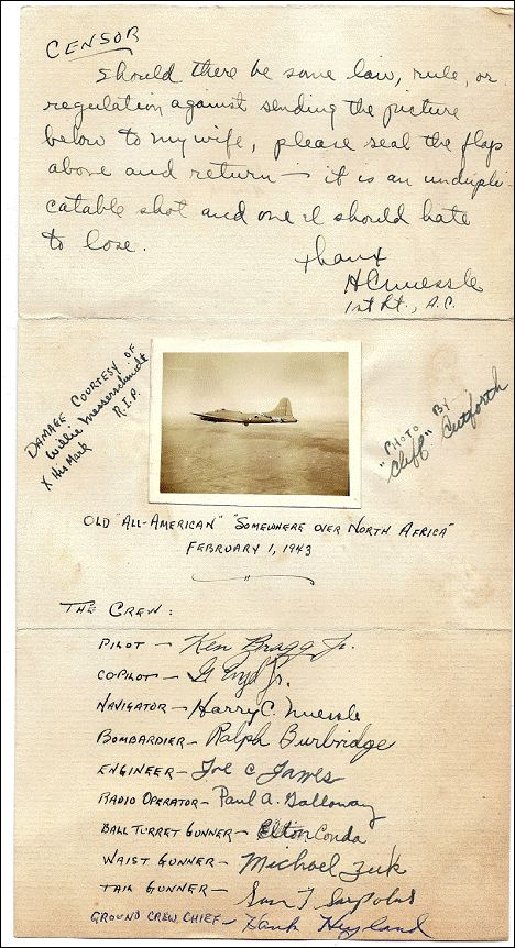 CENSOR
Should there be some law, rule, or
regulation against sending the picture
below to my wife, please seal the flaps
above and return — it is an undupli-
catable shot and one I should hate
to lose.
Thanx
HCNuessle
1st Lt., A.C.
DAMAGE COURTESY OF
Willie Messerschmidt
X His Mark R.I.P.
"PHOTO BY —
"Cliff" Cutforth
OLD "ALL-AMERICAN" "SOMEWHERE OVER NORTH AFRICA"
FEBRUARY 1, 1943
THE CREW:
PILOT — Ken Bragg Jr.
COPILOT — G Boyd Jr.
NAVIGATOR — Harry C. Nuessle
BOMBARDIER — Ralph Burbridge
ENGINEER — Joe C James
RADIO OPERATOR — Paul A. Galloway
BALL TURRET GUNNER — Elton Conda
WAIST GUNNER — Michael Zuk
TAIL GUNNER — Sam T Sarpolus
GROUND CREW CHIEF — Hank Hyland